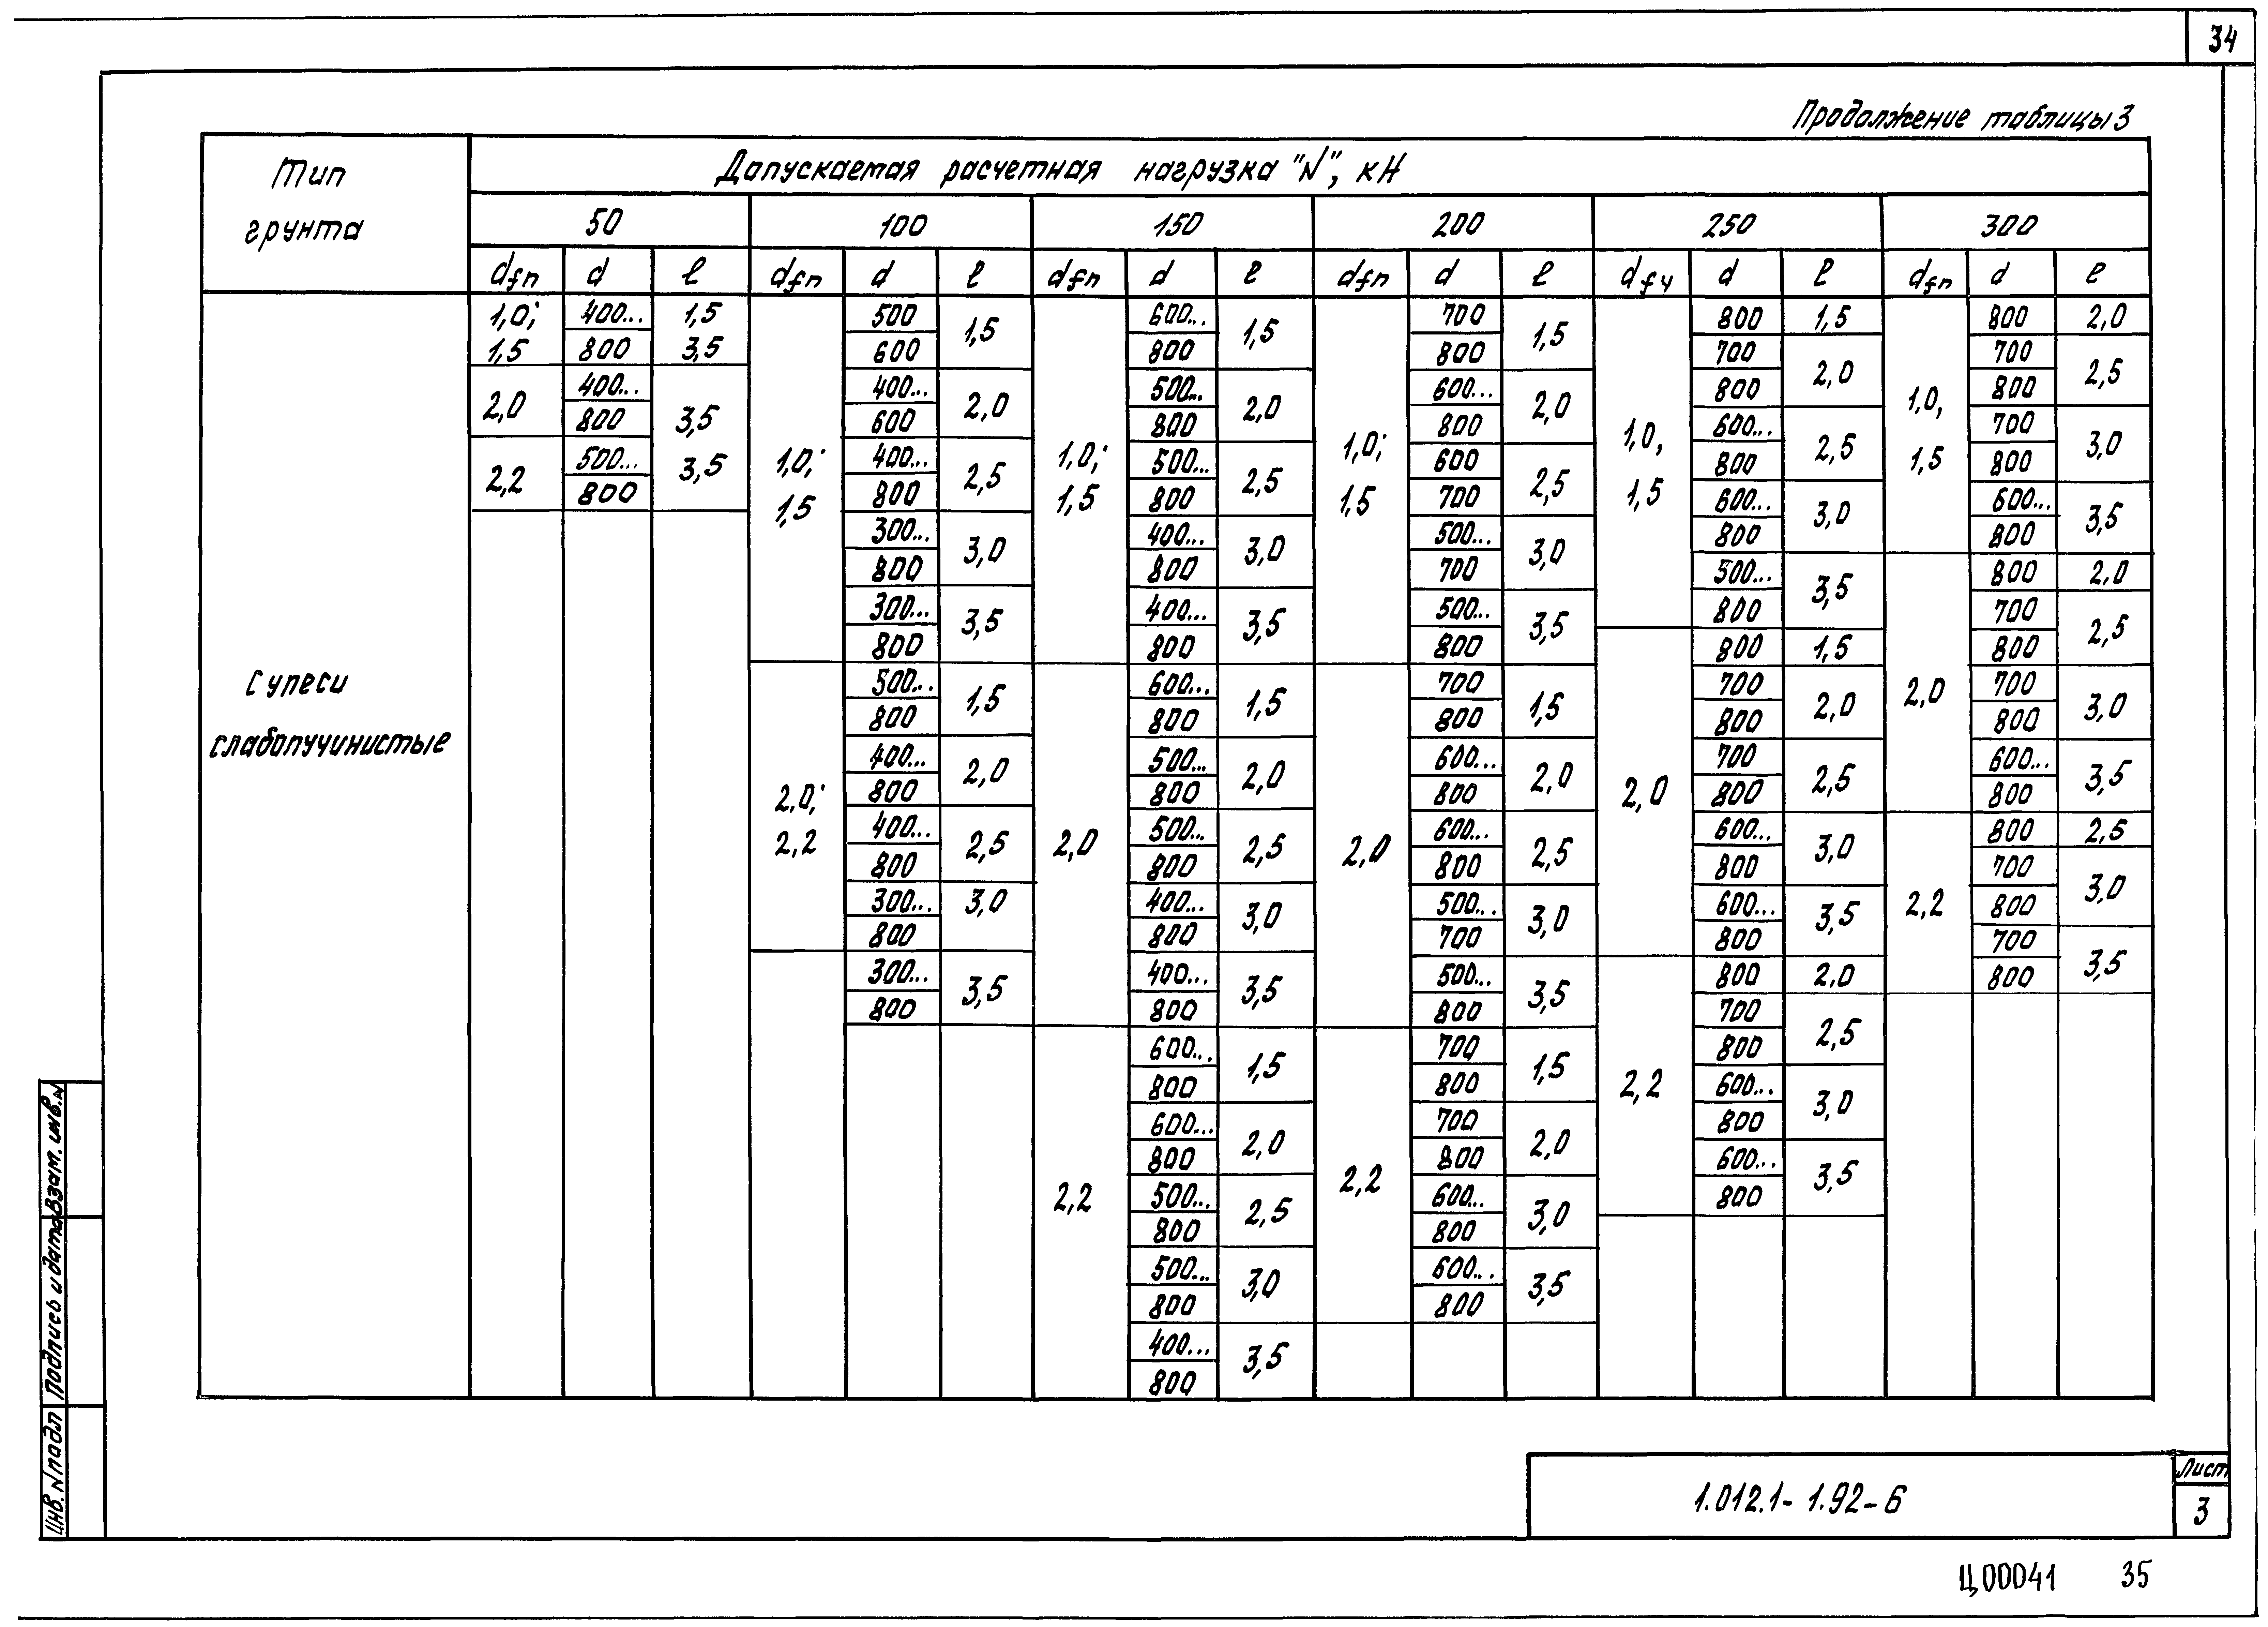 34
Продолжение таблицы 3
Тип грунта
Допускаемая расчетная нагрузка "N", кН
50 100 150 200 250 300
dfn d l dfn d l dfn d l dfn d l dfч d l dfn d l
Супеси
слабопучинистые
1,0; 1,5
400... 800
1,5 3,5
2,0
400... 800
3,5
2,2
500... 800
3,5
1,0; 1,5
500 600
1,5
400... 600
2,0
400... 800
2,5
300... 800
3,0
300... 800
3,5
2,0; 2,2
500... 800
1,5
400... 800
2,0
400... 800
2,5
300... 800
3,0
300... 800
3,5
1,0; 1,5
600... 800
1,5
500... 800
2,0
500... 800
2,5
400... 800
3,0
400... 800
3,5
2,0
600... 800
1,5
500... 800
2,0
500... 800
2,5
400... 800
3,0
400... 800
3,5
2,2
600... 800
1,5
600... 800
2,0
500... 800
2,5
500... 800
3,0
400... 800
3,5
1,0; 1,5
700 800
1,5
600... 800
2,0
600 700
2,5
500... 700
3,0
500... 800
3,5
2,0
700 800
1,5
600... 800
2,0
600... 800
2,5
500... 700
3,0
500... 800
3,5
2,2
700 800
1,5
700 800
2,0
600... 800
3,0
600... 800
3,5
1,0, 1,5
800
1,5
700 800
2,0
600... 800
2,5
600... 800
3,0
500... 800
3,5
2,0
800
1,5
700 800
2,0
700 800
2,5
600... 800
3,0
600... 800
3,5
2,2
800
2,0
700 800
2,5
600... 800
3,0
600... 800
3,5
1,0, 1,5
800
2,0
700 800
2,5
700 800
3,0
600... 800
3,5
2,0
800
2,0
700 800
2,5
700 800
3,0
600... 800
3,5
2,2
800
2,5
700 800
3,0
700 800
3,5
Взам. инв. N
Подпись и дата
Инв. N подл
1.012.1-1.92-6
Лист
3
Ц00041 35